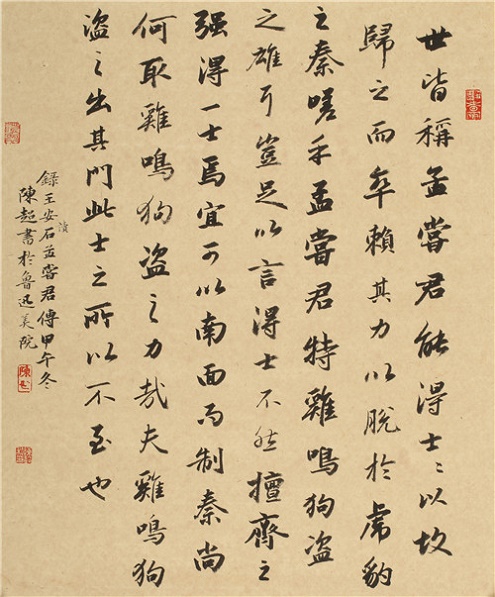 世皆稱孟嘗君能得士々以故
歸之而卒賴其力以脫於虎豹
之秦嗟乎孟嘗君特雞鳴狗盜
之雄耳豈足以言得士不然擅齊之
强得一士焉宜可以南面而制秦尚
何取雞鳴狗盜之力哉夫雞鳴狗
盜之出其門此士之所以不至也
錄王安石讀孟嘗君傳甲午冬
陳超書於魯迅美院